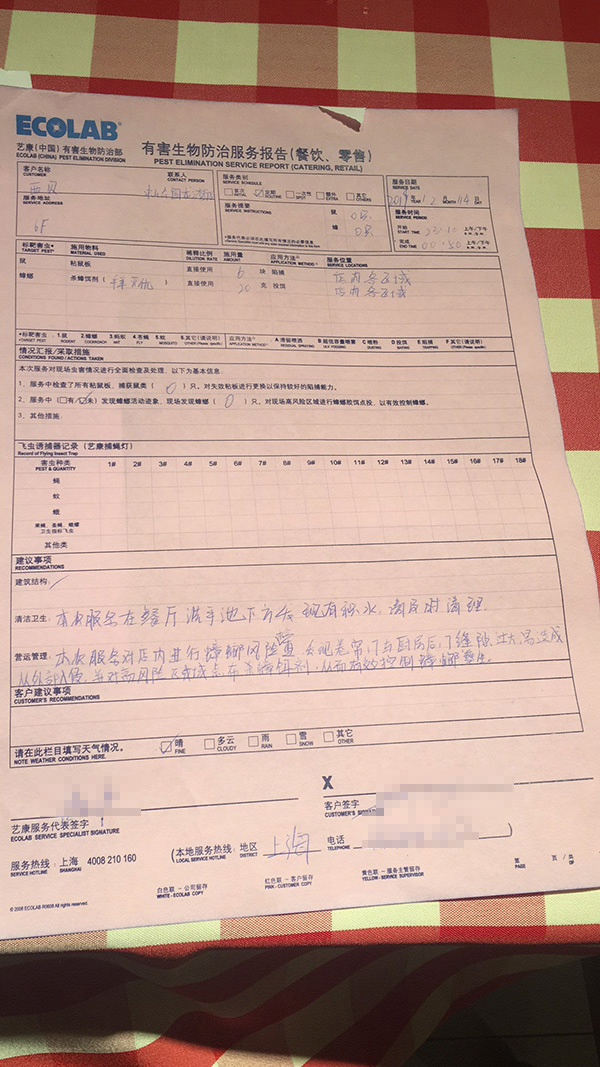 ECOLAB®
艺康(中国)有害生物防治部
ECOLAB (CHINA) PEST ELIMINATION DIVISION
有害生物防治服务报告(餐饮、零售)
PEST ELIMINATION SERVICE REPORT (CATERING, RETAIL)
客户名称
CUSTOMER
西贝
联系人
CONTACT PERSON
服务地址
SERVICE ADDRESS
6F
服务类别
SERVICE SCHEDULE
首次
定期 ROUTINE
一次性 SPOT
额外 EXTRA
其它 OTHERS
服务提要
SERVICE INSTRUCTIONS
鼠 0只
蟑 0只
服务日期
SERVICE DATE
2019 YEAR 12 MONTH 14 DAY
服务时间
SERVICE PERSON
开始 23:10 上午/下午
START TIME
完成 00:50 上午/下午
END TIME
标靶害虫* 施用物料 稀释比例 施用量 应用方法△ 服务位置
TARGET PEST* MATERIAL USED DILUTION RATE AMOUNT APPLICATION METHOD SERVICE LOCATIONS
鼠 粘鼠板 直接使用 6 块 陷捕 店内各区域
蟑螂 杀蟑饵剂( ) 直接使用 20 克 投饵 店内各区域
*标靶害虫 1.鼠 2.蟑螂 3.蚂蚁 4.苍蝇 5.蚊 6.其它(请说明) 应用方法△ A.滞留喷洒 B.超低容量喷雾 C.喷粉 D.投饵 E.陷捕 F.其它(请说明)
情况汇报/采取措施
CONDITIONS FOUND/ACTIONS TAKEN
本次服务对现场虫害情况进行全面检查及处理,以下为基本信息:
1、服务中检查了所有粘鼠板,捕获鼠类( 0 )只,对失效粘板进行更换以保持较好的陷捕能力。
2、服务中(□有/☑未)发现蟑螂活动迹象,现场发现蟑螂( 0 )只,对现场高风险区域进行蟑螂胶饵点投,以有效控制蟑螂。
3、其他措施:
飞虫诱捕器记录(艺康捕蝇灯)
Record of Flying Insect Trap
害虫种类 1# 2# 3# 4# 5# 6# 7# 8# 9# 10# 11# 12# 13# 14# 15# 16# 17# 18#
PEST & QUANTITY
蝇
蚊
蛾
卫生指标飞虫
其他类
建议事项
RECOMMENDATIONS
建筑结构:
清洁卫生: 本次服务在餐厅洗手池下方发现有积水,请及时清理.
营运管理: 本次服务对店内进行蟑螂风险 与厨房后门缝隙过大易造成
从外部入侵,并对高风险区域点布杀蟑饵剂,从而有效控制蟑螂
客户建议事项
CUSTOMER'S RECOMMENDATIONS
请在此栏目填写天气情况。
NOTE WEATHER CONDITIONS HERE.
☑晴 FINE □多云 CLOUDY □雨 RAIN □雪 SNOW □其它 OTHER
X
艺康服务代表签字
ECOLAB SERVICE SPECIALIST SIGNATURE
客户签字
CUSTOMER'S
服务热线: 上海 4008 210 160
SERVICE HOTLINE SHANGHAI
(本地服务热线: 地区 上海 电话
LOCAL SERVICE HOTLINE DISTRICT TELEPHONE
白色联 - 公司留存
WHITE - ECOLAB COPY
红色联 - 客户留存
PINK - CUSTOMER COPY
黄色联 - 服务主管留存
YELLOW - SERVICE SUPERVISOR
页 / 共
PAGE OF
© 2008 ECOLAB All rights reserved.